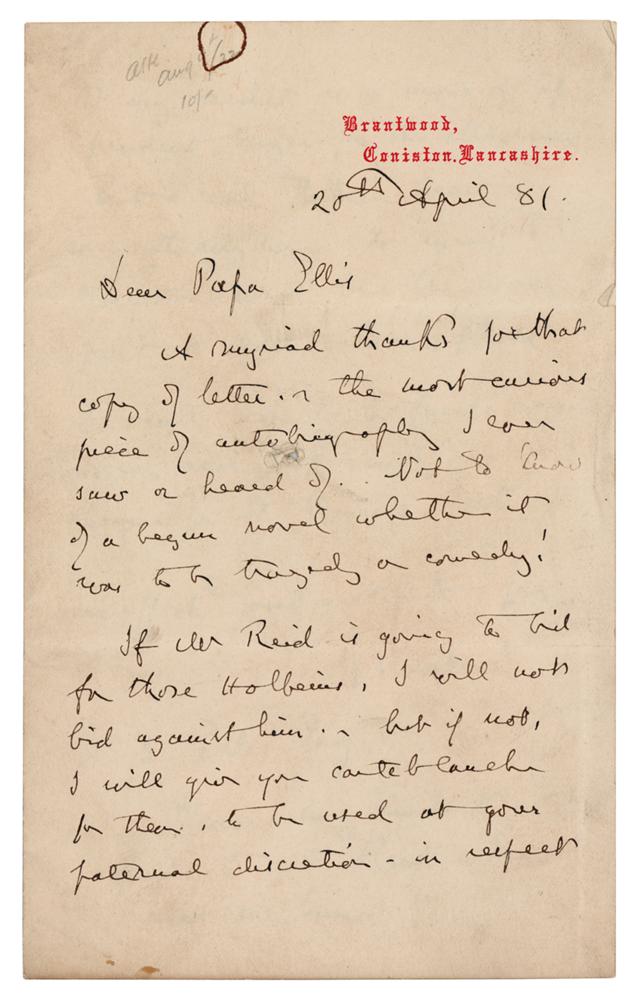 Aug
10/
Brantwood,
Coniston. Lancashire.
20th April 81.
Dear Papa Ellis
A myriad thanks for that
copy of letter. & the most curious
piece of autobiography I ever
saw or heard of. Not to know
of a begun novel whether it
was to be tragedy or comedy!
If Mr Reid is going to bid
for those Holbeins, I will not
bid against him. but if not,
I will give you carte blanche
for them, to be used at your
paternal discretion - in respect